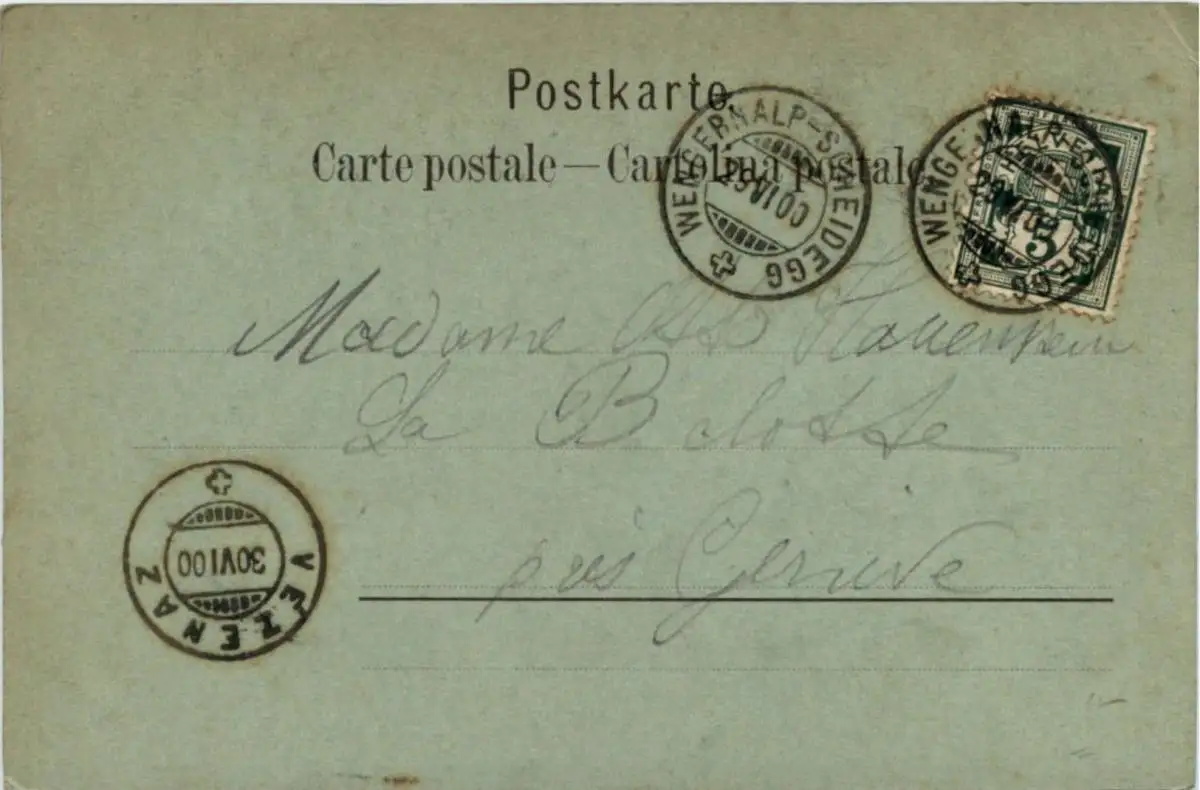 Postkarte.
Carte postale — Cartolina postale
WENGERNALP-SCHEIDEGG
29 VI 00
WENGERNALP-SCHEIDEGG
29 VI 00
5
Madame
La Belotte
près Genève
VEZENAZ
30 VI 00